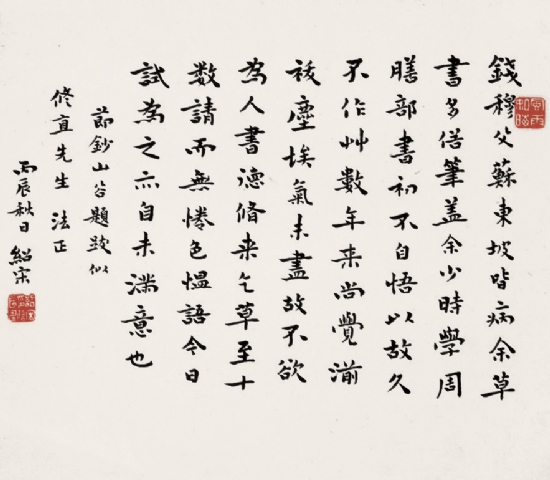 錢穆父蘇東坡皆病余草
書多俗筆蓋余少時學周
膳部書初不自悟以故久
不作艸數年来尚覺湔
祓塵埃氣未盡故不欲
為人書德脩来乞草至十
数請而無惓色慍語今日
試為之亦自未滿意也
節鈔山谷題跋似
修直先生 法正
丙辰秋日 紹宋